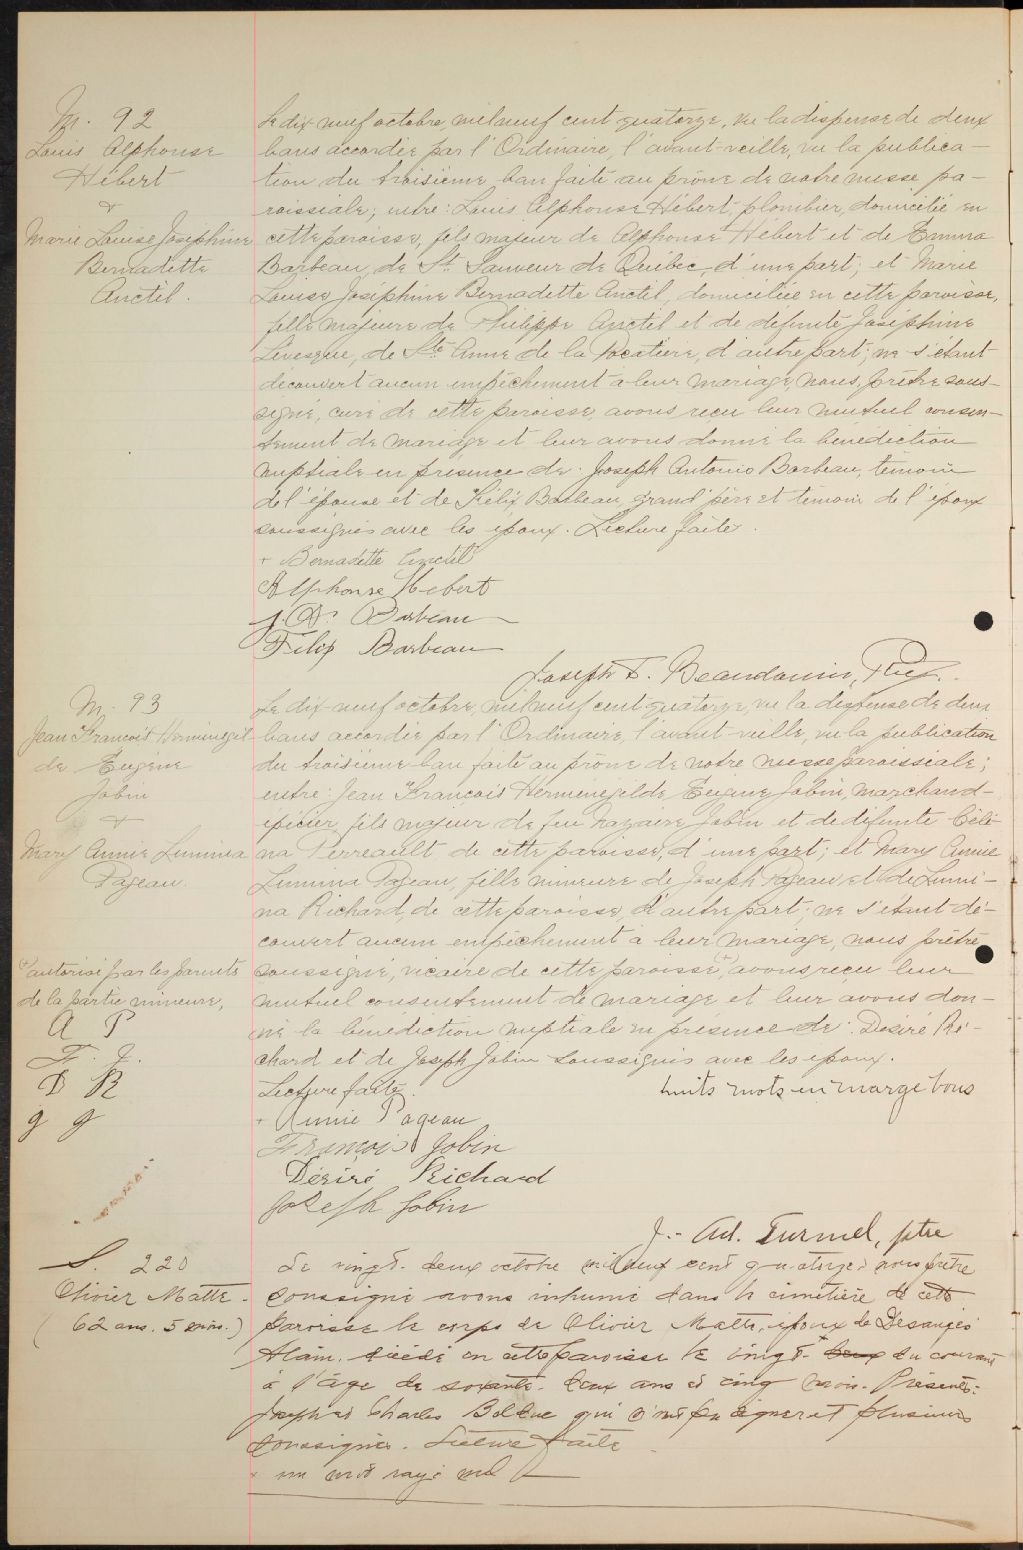 M. 92
Louis Alphonse
Hébert
&
Marie Louise Joséphine
Bernadette
Anctil.
Le dix-neuf octobre, mil neuf cent quatorze, vu la dispense de deux
bans accordée par l'Ordinaire, l'avant-veille, vu la publica-
tion du troisième ban faite au prône de notre messe pa-
roissiale; entre: Louis Alphonse Hébert, plombier, domicilié en
cette paroisse, fils majeur de Alphonse Hébert et de Emma
Barbeau, de St. Sauveur de Québec, d'une part; et Marie
Louise Joséphine Bernadette Anctil, domiciliée en cette paroisse,
fille majeure de Philippe Anctil et de défunte Joséphine
Lévesque, de Ste Anne de la Pocatière, d'autre part; ne s'étant
découvert aucun empêchement à leur mariage, nous, prêtre sous-
signé, curé de cette paroisse, avons reçu leur mutuel consen-
tement de mariage et leur avons donné la bénédiction
nuptiale en présence de: Joseph Antonio Barbeau, témoin
de l'épouse et de Félix Barbeau, grand'père et témoin de l'époux
soussignés avec les époux. Lecture faite.
+ Bernadette Anctil
Alphonse Hebert
J. A. Barbeau
Felix Barbeau
Joseph F. Beaudouin, Ptre.
M. 93
Jean François Herménégil-
de Eugène
Jobin
&
Mary Annie Lumina
Pageau.
Le dix-neuf octobre, mil neuf cent quatorze, vu la dispense de deux
bans accordée par l'Ordinaire, l'avant-veille, vu la publication
du troisième ban faite au prône de notre messe paroissiale;
entre: Jean François Herménégilde Eugène Jobin, marchand-
épicier, fils majeur de feu Nazaire Jobin et de défunte Céli-
na Perreault de cette paroisse, d'une part; et Mary Annie
Lumina Pageau, fille mineure de Joseph Pageau et de Lumi-
na Richard, de cette paroisse, d'autre part; ne s'étant dé-
couvert aucun empêchement à leur mariage, nous prêtre
soussigné, vicaire de cette paroisse (+), avons reçu leur
mutuel consentement de mariage et leur avons don-
né la bénédiction nuptiale en présence de: Désiré Ri-
chard et de Joseph Jobin soussignés avec les époux.
Lecture faite. huits mots en marge bons
(+) autorisé par les parents
de la partie mineure,
A P
F. J.
D R
J J
+ Annie Pageau
François Jobin
Désiré Richard
Joseph Jobin
J.-Ad. Turmel, ptre
S. 220
Olivier Matte.
(62 ans. 5 mois.)
Le vingt-deux octobre mil neuf cent quatorze nous prêtre
soussigné avons inhumé dans le cimetière de cette
paroisse le corps de Olivier Matte, époux de Desanges
Alain, décédé en cette paroisse le vingt + deux du courant
à l'âge de soixante-deux ans et cinq mois. Présents:
Joseph et Charles Bolduc qui n'ont pu signer et plusieurs
soussignés. Lecture faite
+ un mot rayé nul